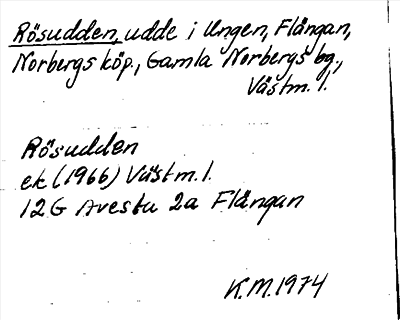 Rösudden, udde i Ungen, Flängan,
Norbergs köp., Gamla Norbergs bg.,
Västm. l.
Rösudden
ek (1966) Västm. l.
12G Avesta 2a Flängan
K.M. 1974